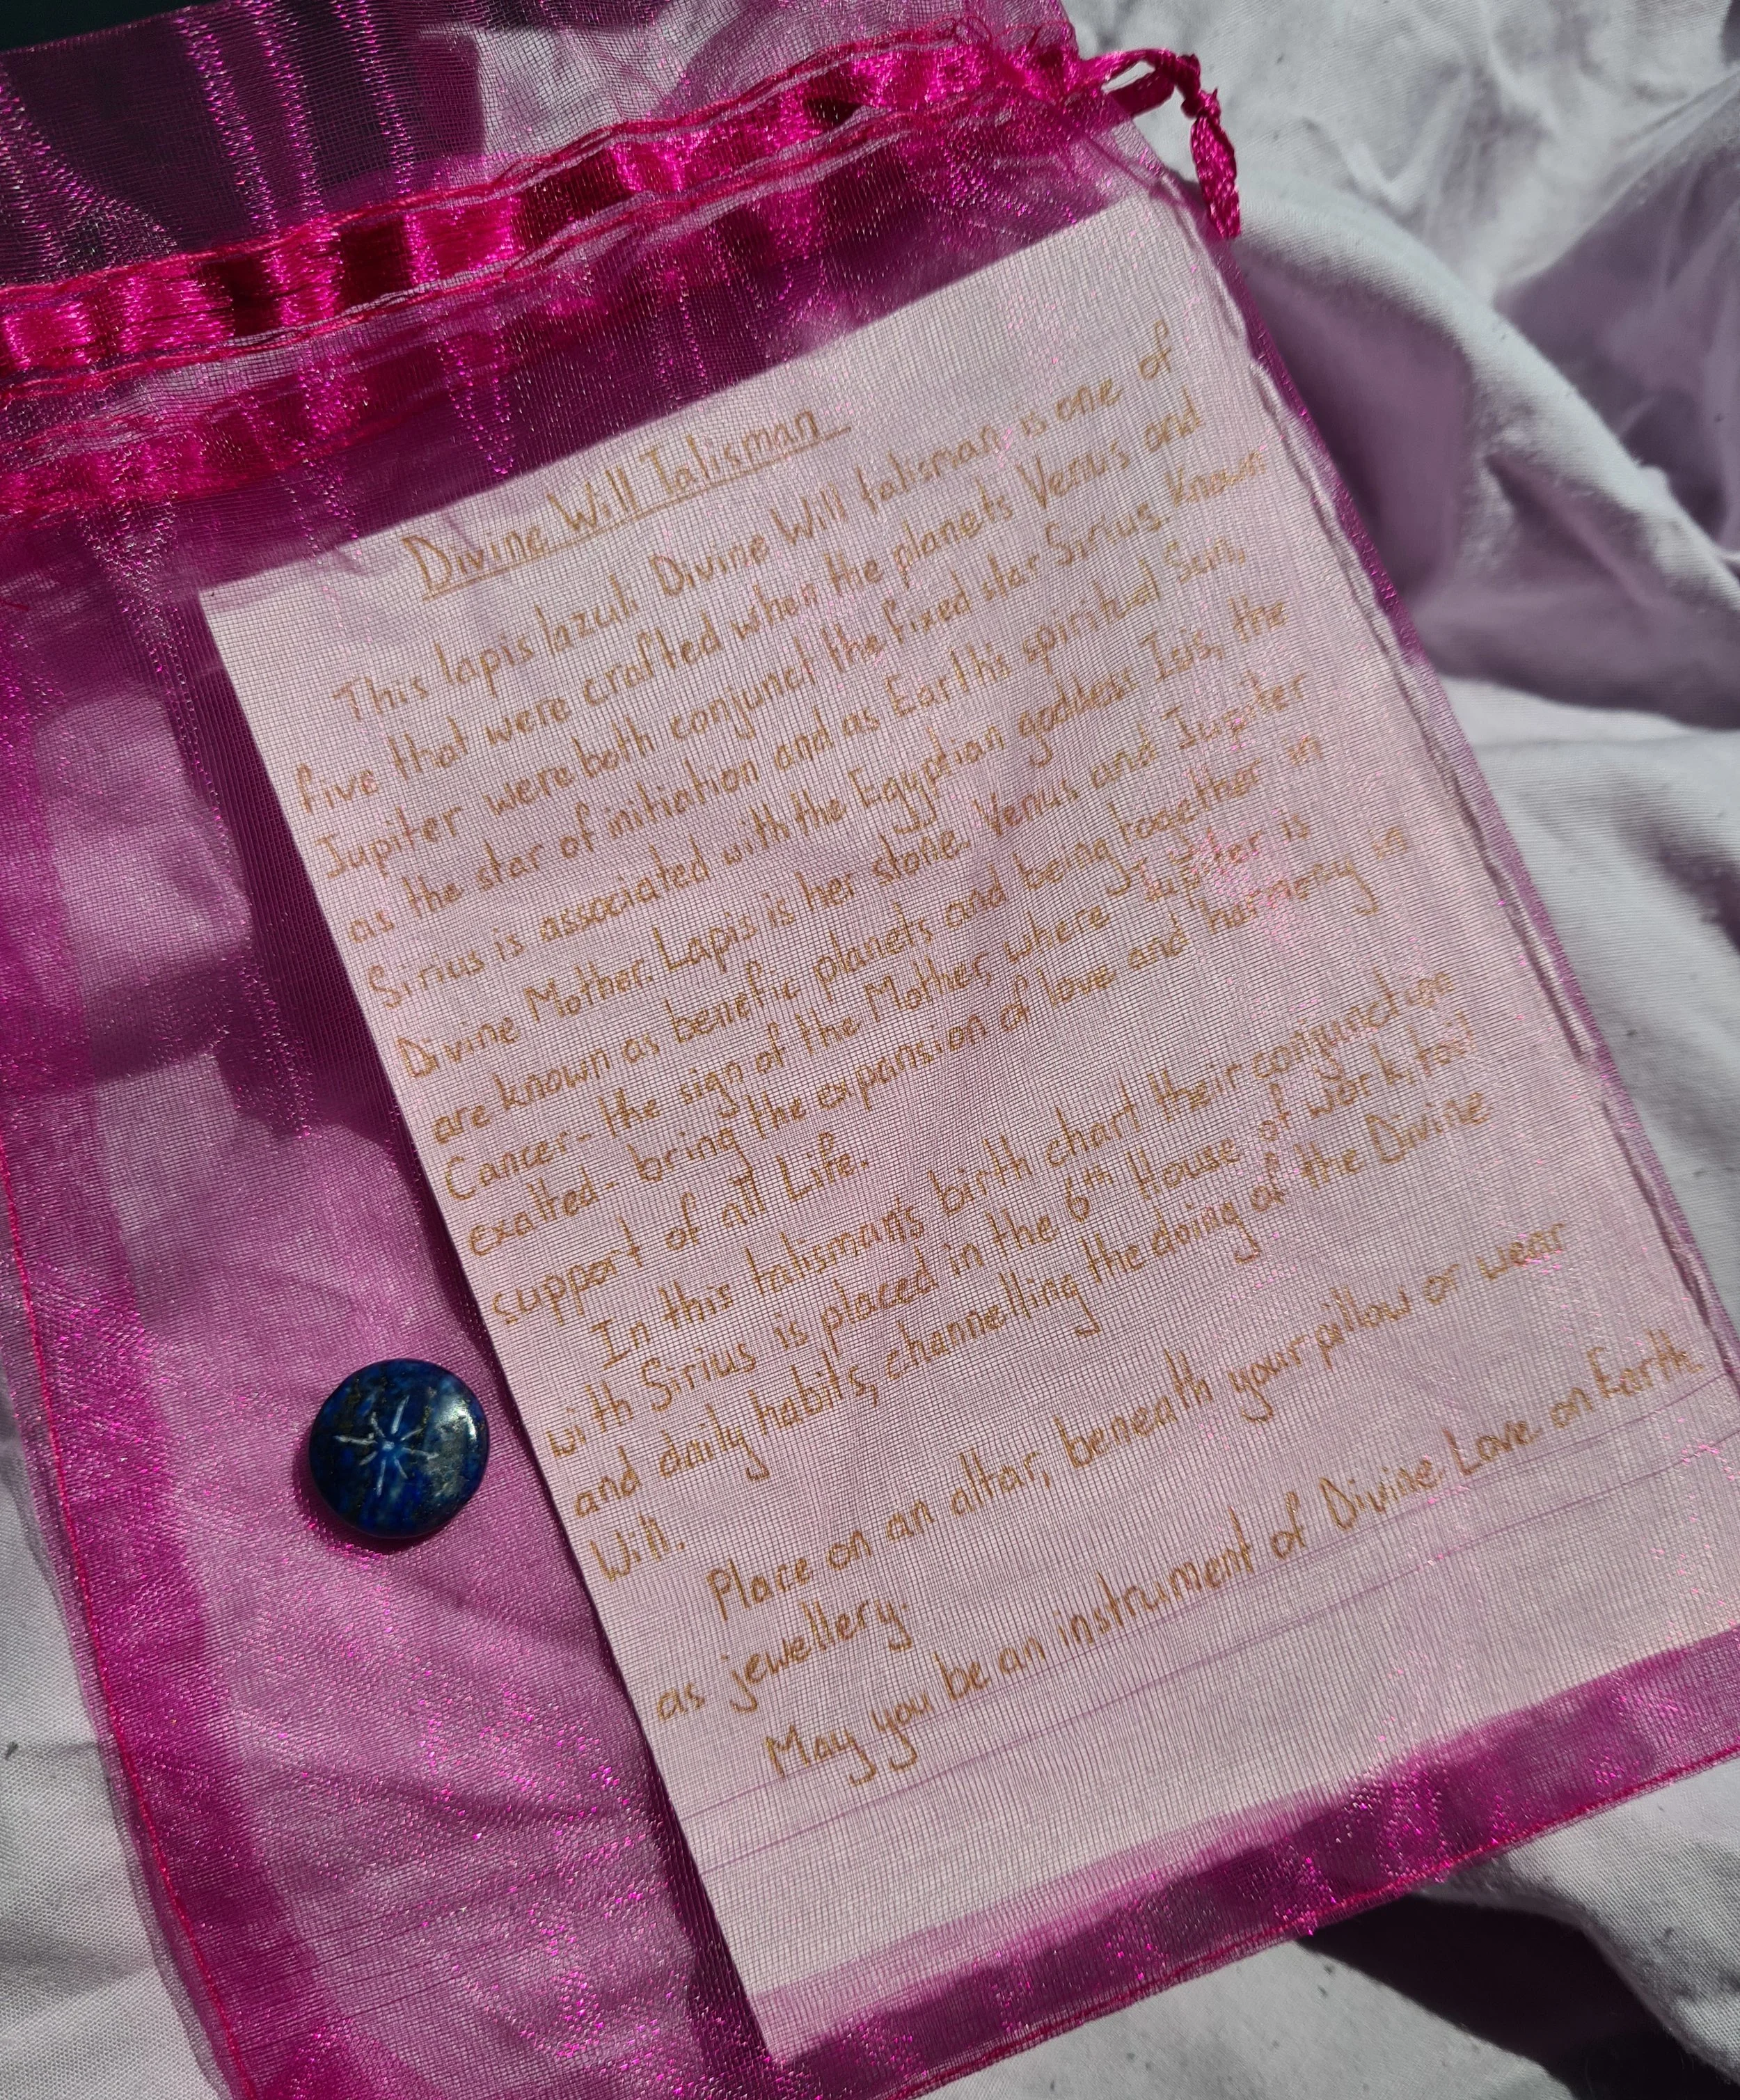 Divine Will Talisman
This lapis lazuli Divine Will talisman is one of
five that were crafted when the planets Venus and
Jupiter were both conjunct the fixed star Sirius. Known
as the star of initiation and as Earth's spiritual Sun,
Sirius is associated with the Egyptian goddess Isis, the
Divine Mother. Lapis is her stone. Venus and Jupiter
are known as benefic planets and being together in
Cancer - the sign of the Mother, where Jupiter is
exalted - bring the expansion of love and harmony in
support of all Life.
In this talisman's birth chart their conjunction
with Sirius is placed in the 6th House of work, toil
and daily habits, channelling the doing of the Divine
Will.
Place on an altar, beneath your pillow or wear
as jewellery.
May you be an instrument of Divine Love on Earth